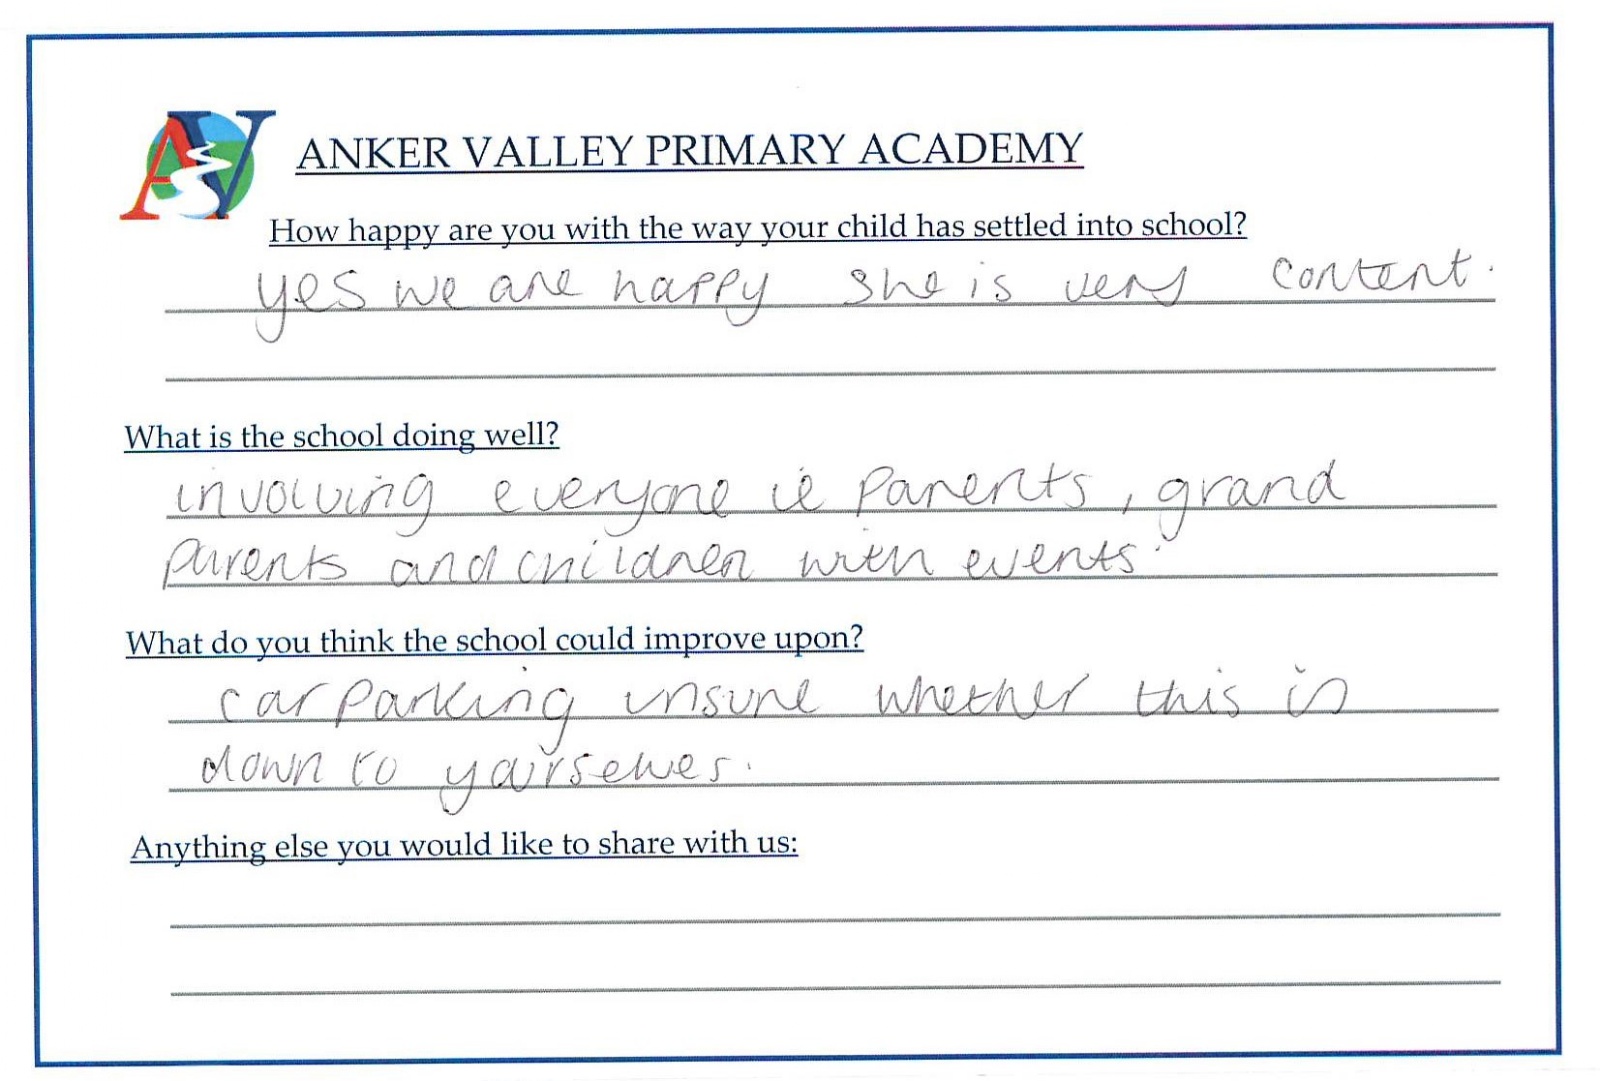 AV
ANKER VALLEY PRIMARY ACADEMY
How happy are you with the way your child has settled into school?
yes we are happy she is very content.
What is the school doing well?
involving everyone ie parents, grand
parents and children with events.
What do you think the school could improve upon?
car parking unsure whether this is
down to yourselves.
Anything else you would like to share with us: